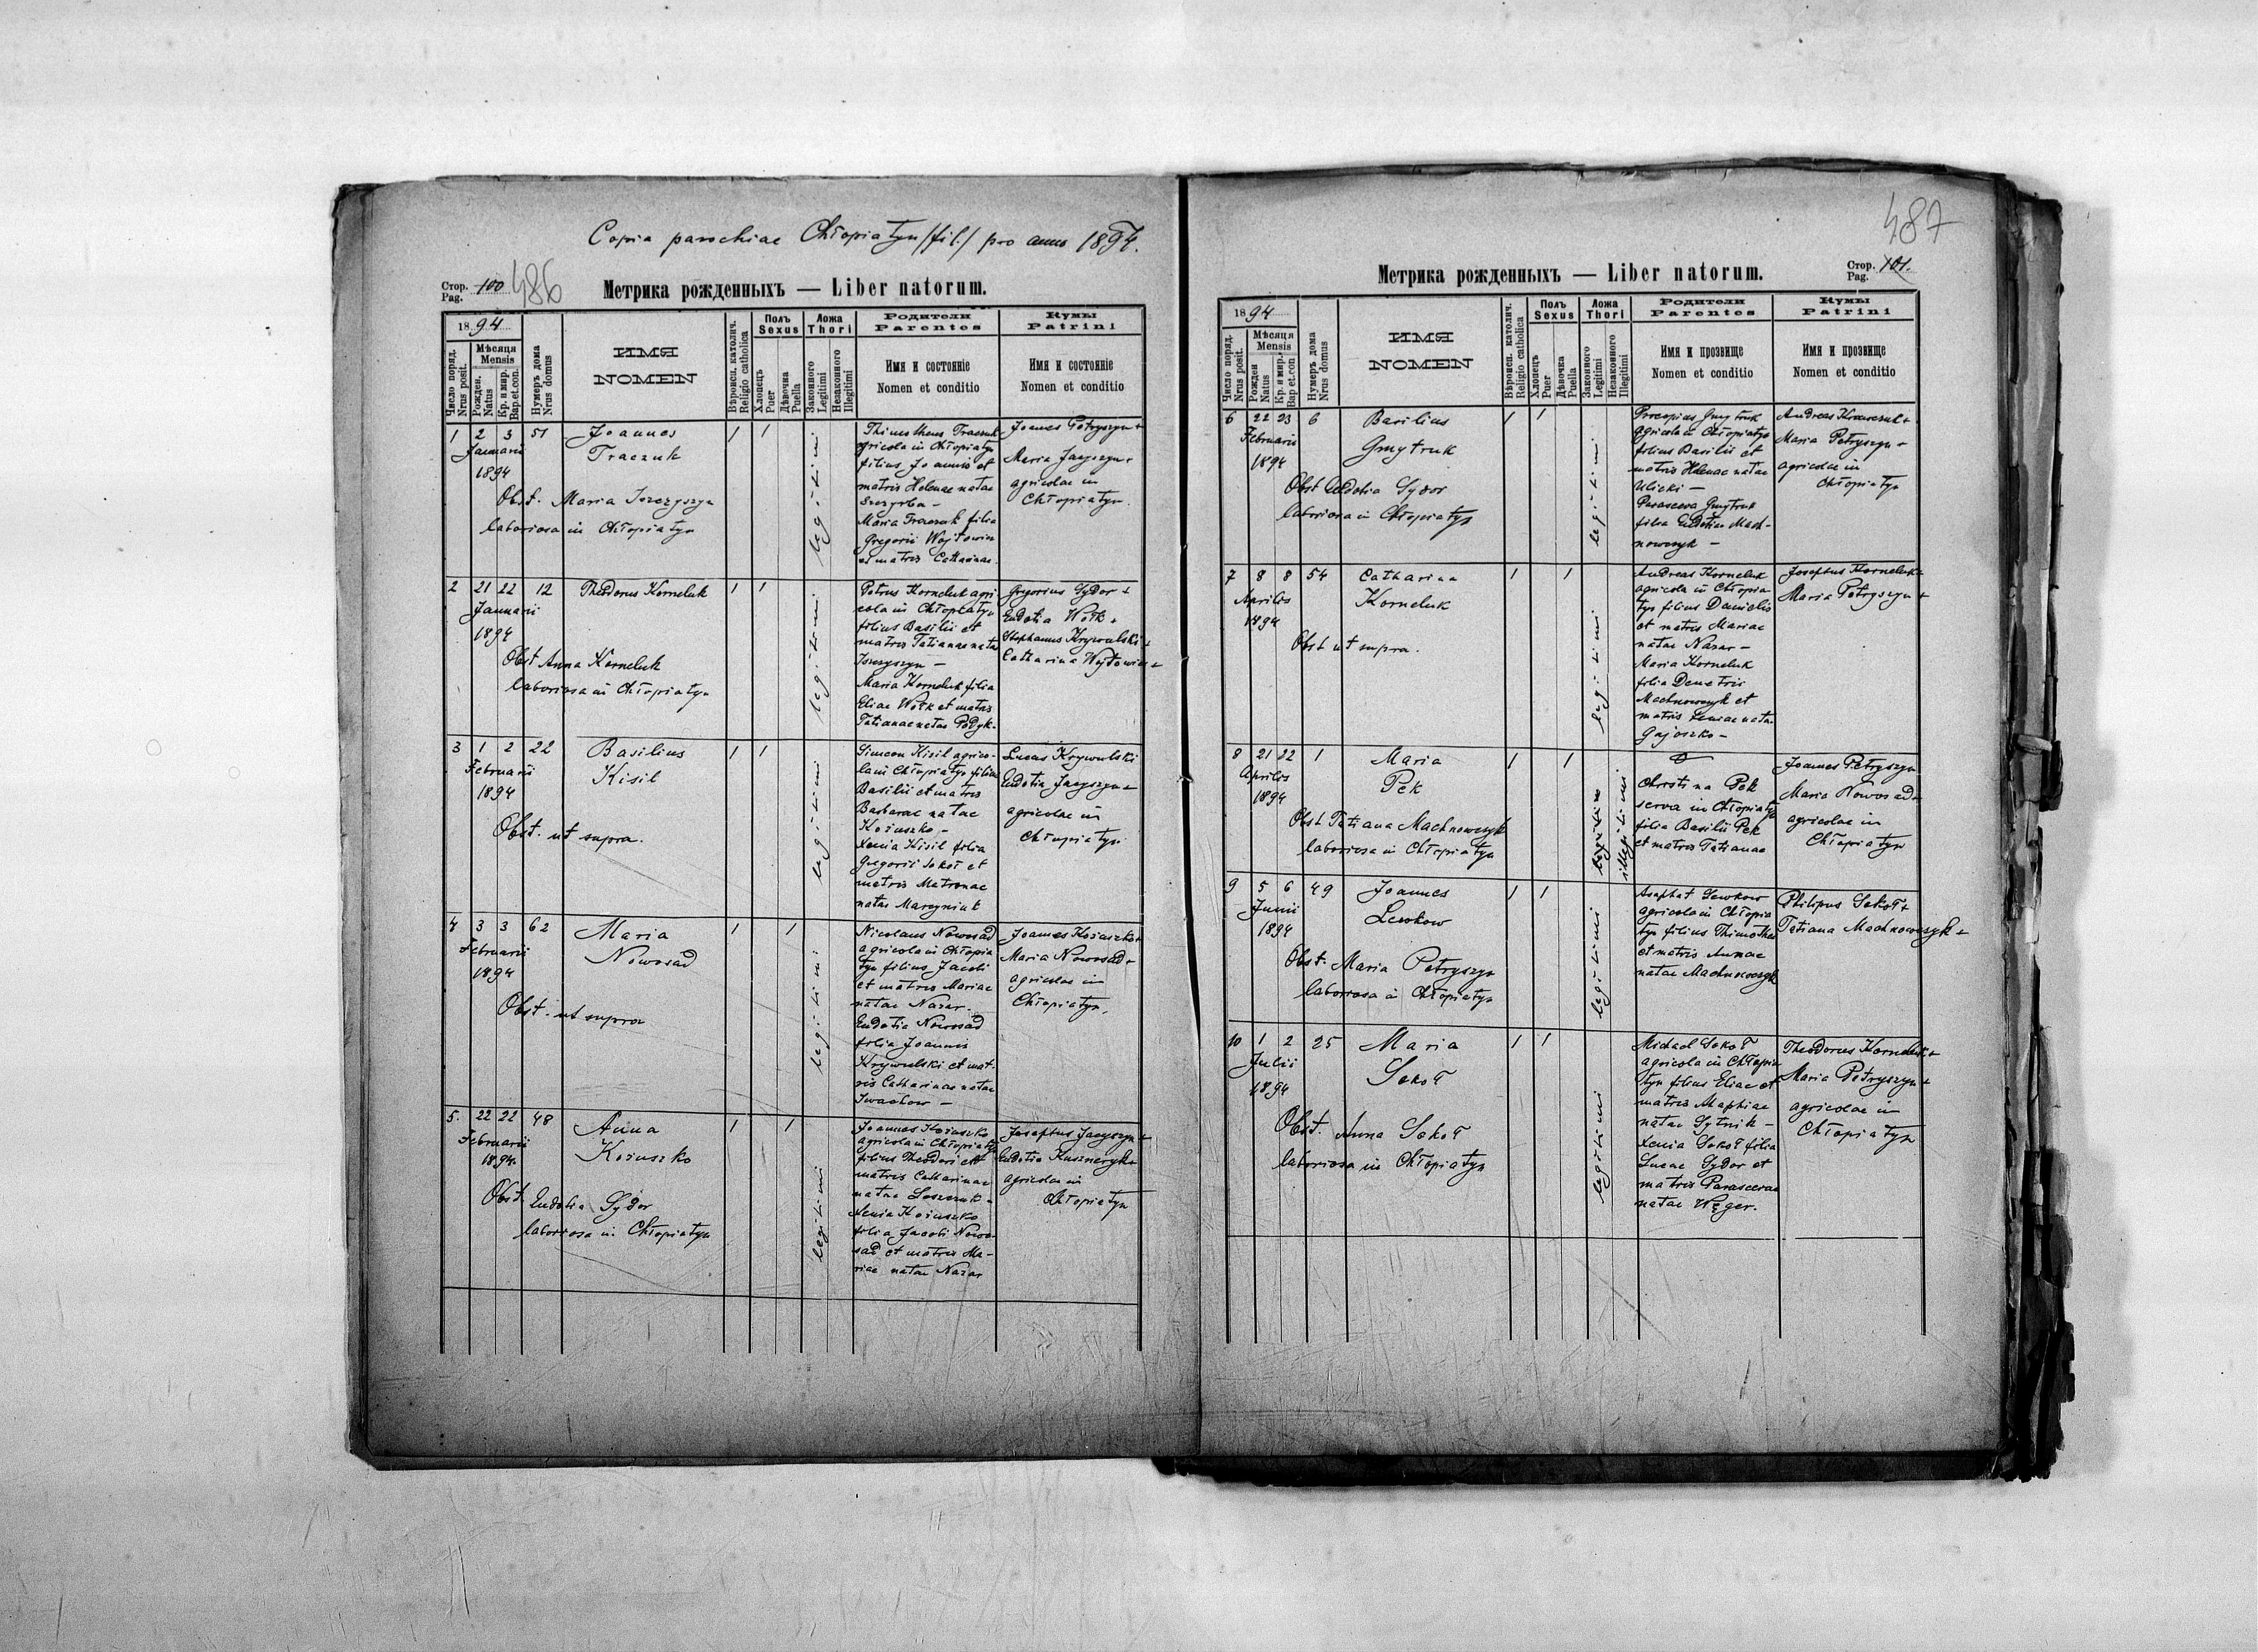 Copia parochiae Chłopiatyn /fil./ pro anno 1894.
Стор. Pag. 100
486
Метрика рожденныхъ — Liber natorum.
1894
Число поряд. Nrus posit.
Мѣсяця Mensis
Рожден. Natus
Кр. и мир. Bap.et.con.
Нумеръ дома Nrus domus
ИМЯ
NOMEN
Вѣроисп. католич. Religio catholica
Полъ Sexus
Хлопецъ Puer
Дѣвочка Puella
Ложа Thori
Законного Legitimi
Незаконного Illegitimi
Родители
Parentes
Имя и состояніе
Nomen et conditio
Кумы
Patrini
Имя и состояніе
Nomen et conditio
1 2 3 51 Joannes 1 1
Januarii Traczuk
1894
Obst. Maria
laboriosa in Chłopiatyn
legitimi
Thimotheus Traczuk
agricola in Chłopiatyn
filius Joannis et
matris Helenae natae
Szczyrba -
Maria Traczuk filia
Gregorii Wojtowicz
et matris Catharinae.
Joannes Petryszyn +
Maria Jacyszyn +
agricolae in
Chłopiatyn.
2 21 22 12 Theodorus Korneluk 1 1
Januarii
1894
Obst Anna Korneluk
laboriosa in Chłopiatyn
legitimi
Petrus Korneluk agri
cola in Chłopiatyn
filius Basilii et
matris Tatianae natae
Maria Korneluk filia
Eliae Wołk et matris
Tatianae natae
Gregorius Sydor +
Eudotia Wołk +
Stephanus Krywulski +
Catharina
3 1 2 22 Basilius 1 1
Februarii Kisil
1894
Obst. ut supra.
legitimi
Simeon Kisil agrico-
la in Chłopiatyn filius
Basilii et matris
Barbarae natae
Kożuszko -
Xenia Kisil filia
Gregorii Sokoł et
matris Matronae
natae Marcyniuk
Lucas Krywulski
Eudotia Jacyszyn +
agricolae in
Chłopiatyn
4 3 3 62 Maria 1 1
Februarii Nowosad
1894
Obst. ut supra
legitimi
Nicolaus Nowosad
agricola in Chłopia
tyn filius Jacobi
et matris Mariae
natae Nazar.
Eudotia Nowosad
filia Joannis
Krywulski et mat-
ris Catharinae natae
Iwachow -
Joannes Kożuszko +
Maria Nowosad +
agricolae in
Chłopiatyn.
5. 22 22 48 Anna 1 1
Februarii Kożuszko
1894
Obst. Eudotia Sydor
laboriosa in Chłopiatyn
legitimi
Joannes Kożuszko
agricola in Chłopiatyn
filius Theodori et
matris Catharinae
natae
Xenia Kożuszko
filia Jacobi Nowo-
sad et matris Ma-
riae natae Nazar
Josephus Jacyszyn +
Eudotia
agricolae in
Chłopiatyn
487
Стор. Pag. 101.
Метрика рожденныхъ — Liber natorum.
1894
Число поряд. Nrus posit.
Мѣсяця Mensis
Рожден Natus
Кр. и мир. Bap.et.con
Нумеръ дома Nrus domus
ИМЯ
NOMEN
Вѣроисп. католич. Religio catholica
Полъ Sexus
Хлопецъ Puer
Дѣвочка Puella
Ложа Thori
Законного Legitimi
Незаконного Illegitimi
Родители
Parentes
Имя и прозвище
Nomen et conditio
Кумы
Patrini
Имя и прозвище
Nomen et conditio
6 22 23 6 Basilius 1 1
Februarii Gmytruk
1894
Obst Eudotia Sydor
laboriosa in Chłopiatyn
legitimi
Procopius Gmytruk
agricola in Chłopiatyn
filius Basilii et
matris Helenae natae
Ulicki -
Parasceva Gmytruk
filia Eudotiae Mach-
nowczyk -
Andreas Krawczuk +
Maria Petryszyn +
agricolae in
Chłopiatyn
7 8 8 54 Catharina 1 1
Aprilis Korneluk
1894
Obst ut supra.
legitimi
Andreas Korneluk
agricola in Chłopia
tyn filius Danielis
et matris Mariae
natae Nazar -
Maria Korneluk
filia Demetrii
Machnowczyk et
matris Xeniae natae
Gajoszko -
Josephus Korneluk +
Maria Petryszyn +
8 21 22 1 Maria 1 1
Aprilis Pek
1894
Obst Tatiana Machnowczyk
laboriosa in Chłopiatyn
legitimi
illegitimi
Christina Pek
serva in Chłopiatyn
filia Basilii Pek
et matris Tatianae
Joannes Petryszyn
Maria Nowosad +
agricolae in
Chłopiatyn
9 5 6 49 Joannes 1 1
Junii Lewkow
1894
Obst. Maria Petryszyn
laboriosa in Chłopiatyn
legitimi
Asaphat Lewkow
agricola in Chłopia
tyn filius Thimothei
et matris Annae
natae Machnowczyk
Philipus Sokoł +
Tatiana Machnowczyk +
10 1 2 25 Maria 1 1
Julii Sokoł
1894
Obst. Anna Sokoł
laboriosa in Chłopiatyn
legitimi
Michael Sokoł
agricola in Chłopia
tyn filius Eliae et
matris Maphiae
natae Sytnik -
Xenia Sokoł filia
Lucae Sydor et
matris Parascevae
natae Węger.
Theodorus Korneluk +
Maria Petryszyn +
agricolae in
Chłopiatyn